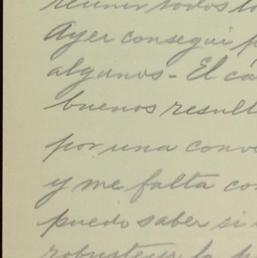 reunir todos lo
Ayer consegui p
algunos - El cá
buenos result
por una conv
y me falta co
puedo saber si
robustecer la